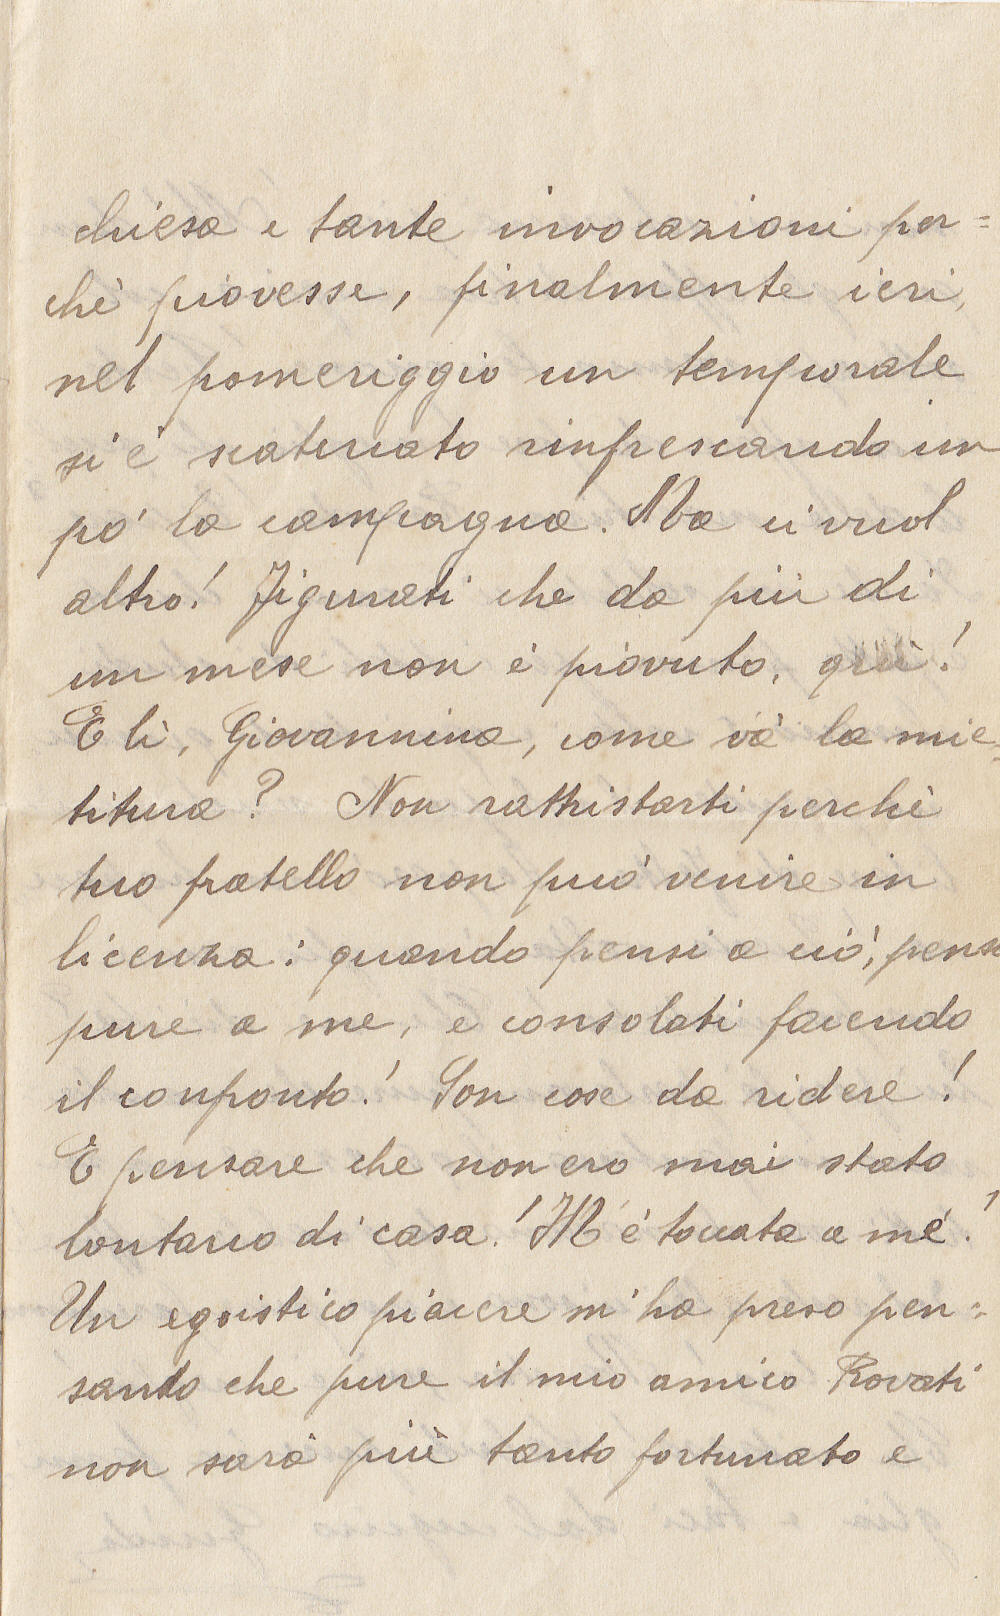 chiesa e tante invocazioni per=
chè piovesse, finalmente ieri,
nel pomeriggio un temporale
si è scatenato rinfrescando un
pò la campagna. Ma ci vuol
altro! Figurati che da più di
un mese non è piovuto, qui!
E lì, Giovannina, come và la mie=
titura? Non rattristarti perchè
tuo fratello non può venire in
licenza: quando pensi a ciò, pensa
pure a me, e consolati facendo
il confronto! Son cose da ridere!
E pensare che non ero mai stato
lontano di casa! M'è toccata a mè!
Un egoistico piacere m'ha preso pen=
sando che pure il mio amico Rovati
non sarà più tanto fortunato e